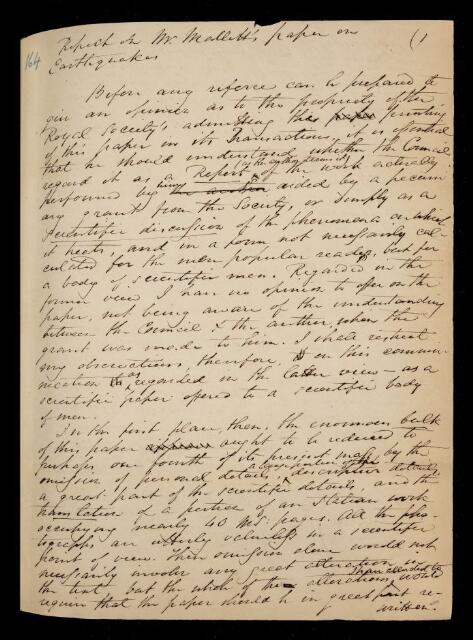 Report on Mr. Mallett's paper on (1
164
Earthquakes
Before any referee can be prepared to
give an opinion as to the propriety of the
Royal Society's admitting the printing
of this paper in its Transactions, it is essential
that he should understand whether the Council
regard it as a Report (to the Society promised)
of the work actually
performed by him aided by a pecuni
ary grant from the Society, or simply as a
scientific discussion of the phenomena on which
it treats, and in a form not necessarily cal-
culated for the mere popular reader, but for
a body of scientific men. Regarded in the
former view I have no opinion to offer on the
paper, not being aware of the understanding
between the Council & the author, when the
grant was made to him. I shall restrict
my observations, therefore, to on this commu-
nication as regarded in the latter view – as a
scientific paper offered to a scientific body
of men.
In the first place, then, the enormous bulk
of this paper ought to be reduced to
perhaps one fourth of its present mass by the
omission of personal details, descriptive details,
a large portion of the
a great part of the scientific details, and the
translation of a portion of an Italian work
occupying nearly 40 MS. pages. All the pho-
tographs are utterly valueless in a scientific
point of view. Their omission alone would not
necessarily involve any great alteration in
the text, but the whole of the alterations
I have alluded to would
require that the paper should be in great part re-
written.